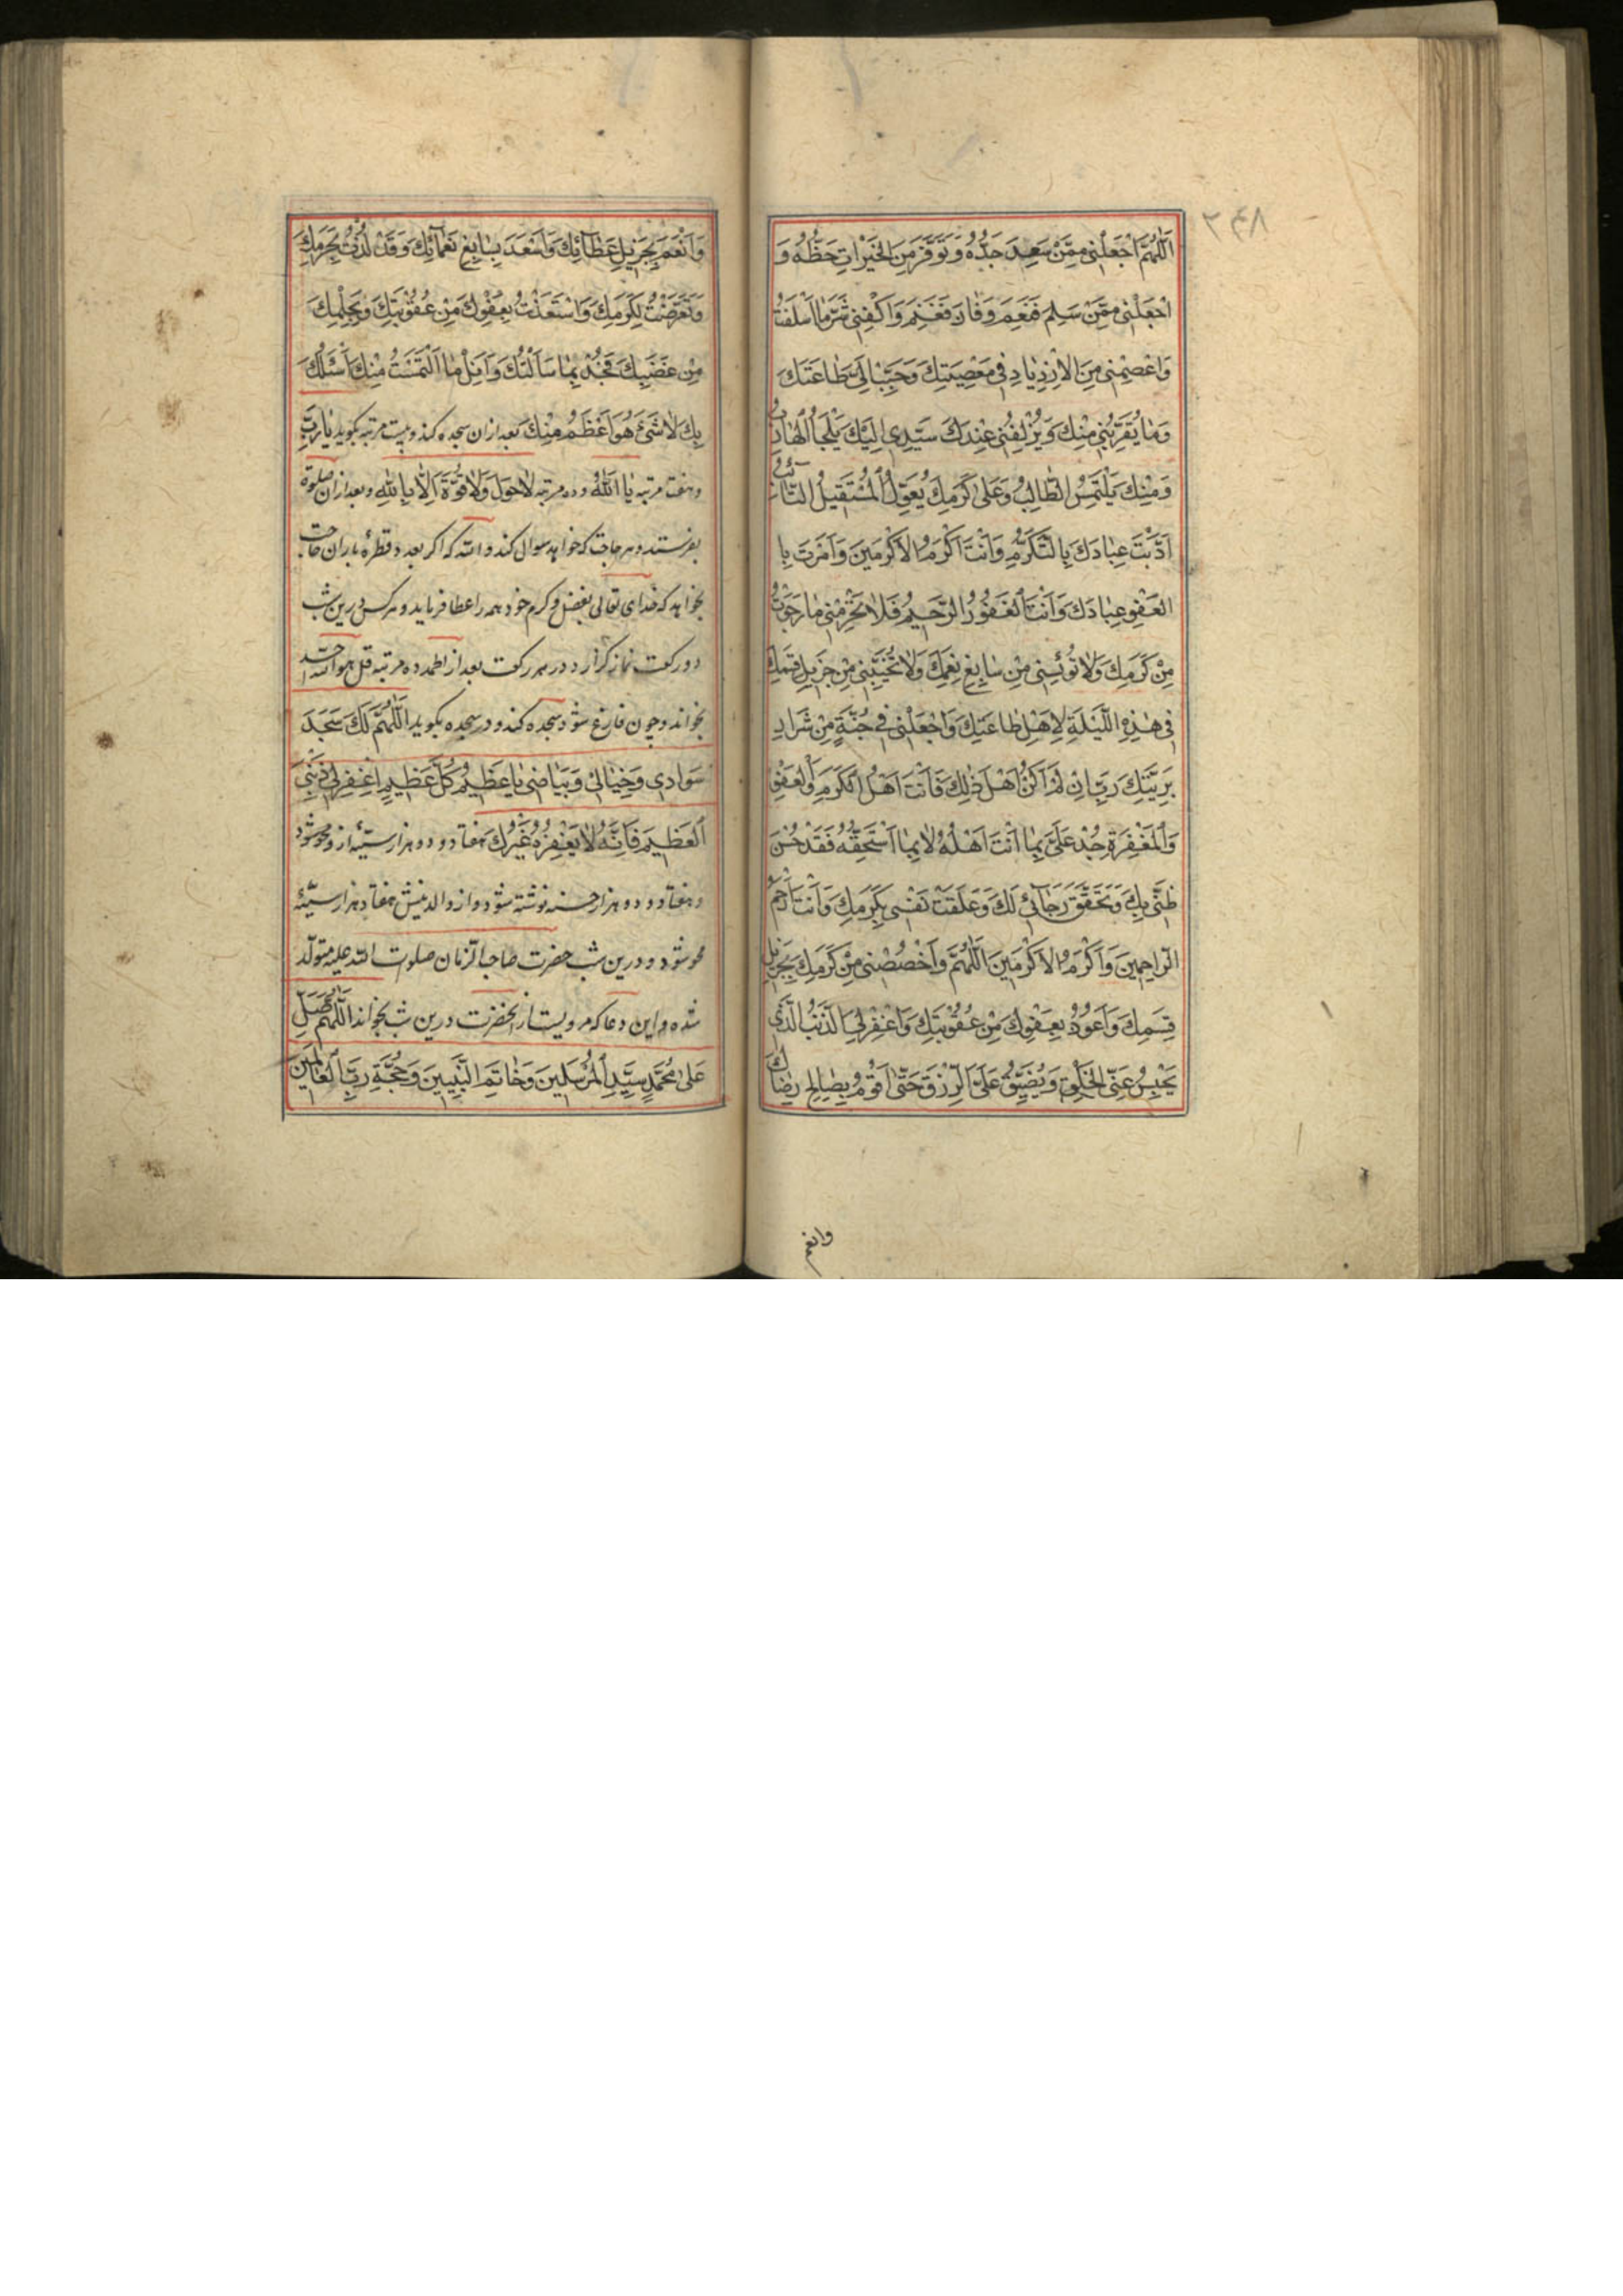 ۲۴۸
اَللّٰهُمَّ اجْعَلْنِى مِمَّنْ سَعِدَ جَدُّهُ وَتَوَفَّرَ مِنَ الْخَيْرَاتِ حَظُّهُ وَ
اجْعَلْنِى مِمَّنْ سَلِمَ فَنَعِمَ وَفَازَ فَغَنِمَ وَاكْفِنِى شَرَّ مٰا اَسْلَفْتُ
وَاعْصِمْنِى مِنَ الْاِزْدِيٰادِ فِى مَعْصِيَتِكَ وَحَبِّبْ اِلَىَّ طٰاعَتَكَ
وَمٰا يُقَرِّبُنِى مِنْكَ وَيُزْلِفُنِى عِنْدَكَ سَيِّدِى اِلَيْكَ يَلْجَاُ الْهٰارِبُ
وَمِنْكَ يَلْتَمِسُ الطّٰالِبُ وَعَلىٰ كَرَمِكَ يُعَوِّلُ الْمُسْتَقِيلُ التّٰائِبُ
اَدَّبْتَ عِبٰادَكَ بِالتَّكَرُّمِ وَاَنْتَ اَكْرَمُ الْاَكْرَمِينَ وَاَمَرْتَ بِا
الْعَفْوِ عِبٰادَكَ وَاَنْتَ الْغَفُورُ الرَّحِيمُ فَلٰا تَحْرِمْنِى مٰا رَجَوْتُ
مِنْ كَرَمِكَ وَلٰا تُؤْيِسْنِى مِنْ سٰابِغِ نِعَمِكَ وَلٰا تُخَيِّبْنِى مِنْ جَزِيلِ قِسَمِكَ
فِى هٰذِهِ اللَّيْلَةِ لِاَهْلِ طٰاعَتِكَ وَاجْعَلْنِى فِى جُنَّةٍ مِنْ شَرٰارِ
بَرِيَّتِكَ رَبِّ اِنْ لَمْ اَكُنْ اَهْلَ ذٰلِكَ فَاَنْتَ اَهْلُ الْكَرَمِ وَالْعَفْوِ
وَالْمَغْفِرَةِ جُدْ عَلَىَّ بِمٰا اَنْتَ اَهْلُهُ لٰا بِمٰا اَسْتَحِقُّهُ فَقَدْ حَسُنَ
ظَنِّى بِكَ وَتَحَقَّقَ رَجٰائِى لَكَ وَعَلَقَتْ نَفْسِى بِكَرَمِكَ وَاَنْتَ اَرْحَمُ
الرّٰاحِمِينَ وَاَكْرَمُ الْاَكْرَمِينَ اَللّٰهُمَّ وَاخْصُصْنِى مِنْ كَرَمِكَ بِجَزِيلِ
قِسَمِكَ وَاَعُوذُ بِعَفْوِكَ مِنْ عُقُوبَتِكَ وَاغْفِرْ لِىَ الذَّنْبَ الَّذِى
يَحْبِسُ عَنِّى الْخُلُقَ وَيُضَيِّقُ عَلَىَّ الرِّزْقَ حَتّٰى اَقُومَ بِصٰالِحِ رِضٰاكَ
وانعم
وَاَنْعَمَ بِجَزِيلِ عَطٰائِكَ وَاَسْعَدَ بِسٰابِغِ نَعْمٰائِكَ وَقَدْ لُذْتُ بِحَرَمِكَ
وَتَعَرَّضْتُ لِكَرَمِكَ وَاسْتَعَذْتُ بِعَفْوِكَ مِنْ عُقُوبَتِكَ وَبِحِلْمِكَ
مِنْ غَضَبِكَ فَجُدْ بِمٰا سَاَلْتُكَ وَاَنِلْ مٰا الْتَمَسْتُ مِنْكَ اَسْئَلُكَ
بِكَ لٰا شَىْءَ هُوَ اَعْظَمُ مِنْكَ بعد ازان سجده كند وبيست مرتبه بكويد يٰا رَبِّ
وهفت مرتبه يٰا اَللّٰهُ وده مرتبه لٰا حَوْلَ وَلٰا قُوَّةَ اِلّٰا بِاللّٰهِ وبعد ازان صلوة
بفرستد وهر حاجت كه خواهد سوال كند والله كه اكر بعدد قطرهٔ باران حاجت
بخواهد كه خداى تعالى بفضل وكرم خود همه را عطا فرمايد وهركس درين شب
دو ركعت نماز كزارد ودر هر ركعت بعد از الحمد ده مرتبه قل هو الله احد
بخواند وچون فارغ شود سجده كند ودر سجده بكويد اَللّٰهُمَّ لَكَ سَجَدَ
سَوٰادِى وَخِيٰالِى وَبَيٰاضِى يٰا عَظِيمُ كُلِّ عَظِيمٍ اغْفِرْ لِى ذَنْبِىَ
الْعَظِيمَ فَاِنَّهُ لٰا يَغْفِرُهُ غَيْرُكَ هفتاد ودو هزار سيّئه ازو محو شود
وهفتاد ودو هزار حسنه نوشته شود واز والدينش هفتاد هزار سيّئه
محو شود ودرين شب حضرت صاحب الزمان صلوت الله عليه متولّد
شده واين دعا كه مرويست از انحضرت درين شب بخواند اَللّٰهُمَّ صَلِّ
عَلىٰ مُحَمَّدٍ سَيِّدِ الْمُرْسَلِينَ وَخٰاتَمِ النَّبِيِّينَ وَحُجَّةِ رَبِّ الْعٰالَمِينَ